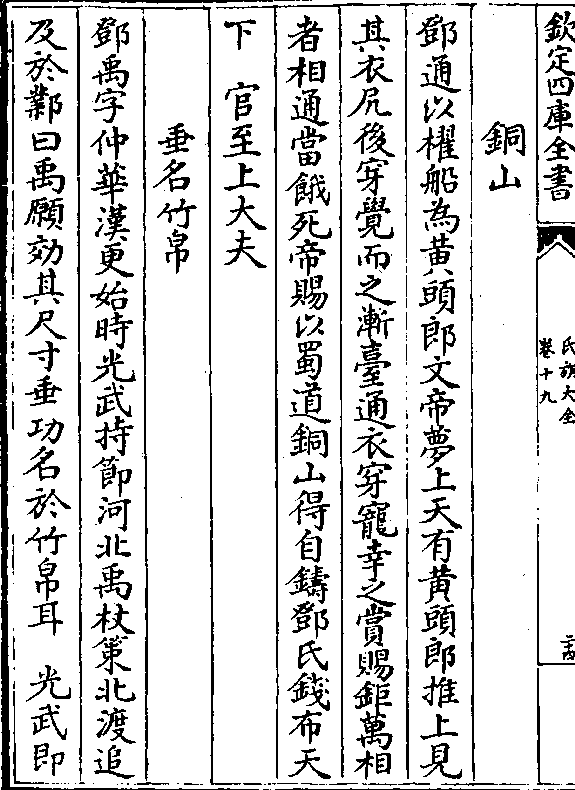 欽定四庫全書
氏族大全
卷十九
銅山
鄧通以櫂船為黄頭郎文帝夢上天有黄頭郎推上見
其衣尻後穿覺而之漸臺通衣穿寵幸之賞賜鉅萬相
者相通當餓死帝賜以蜀道銅山得自鑄鄧氏錢布天
下 官至上大夫
垂名竹帛
鄧禹字仲華漢更始時光武持節河北禹杖策北渡追
及於鄴曰禹願効其尺寸垂功名於竹帛耳 光武即